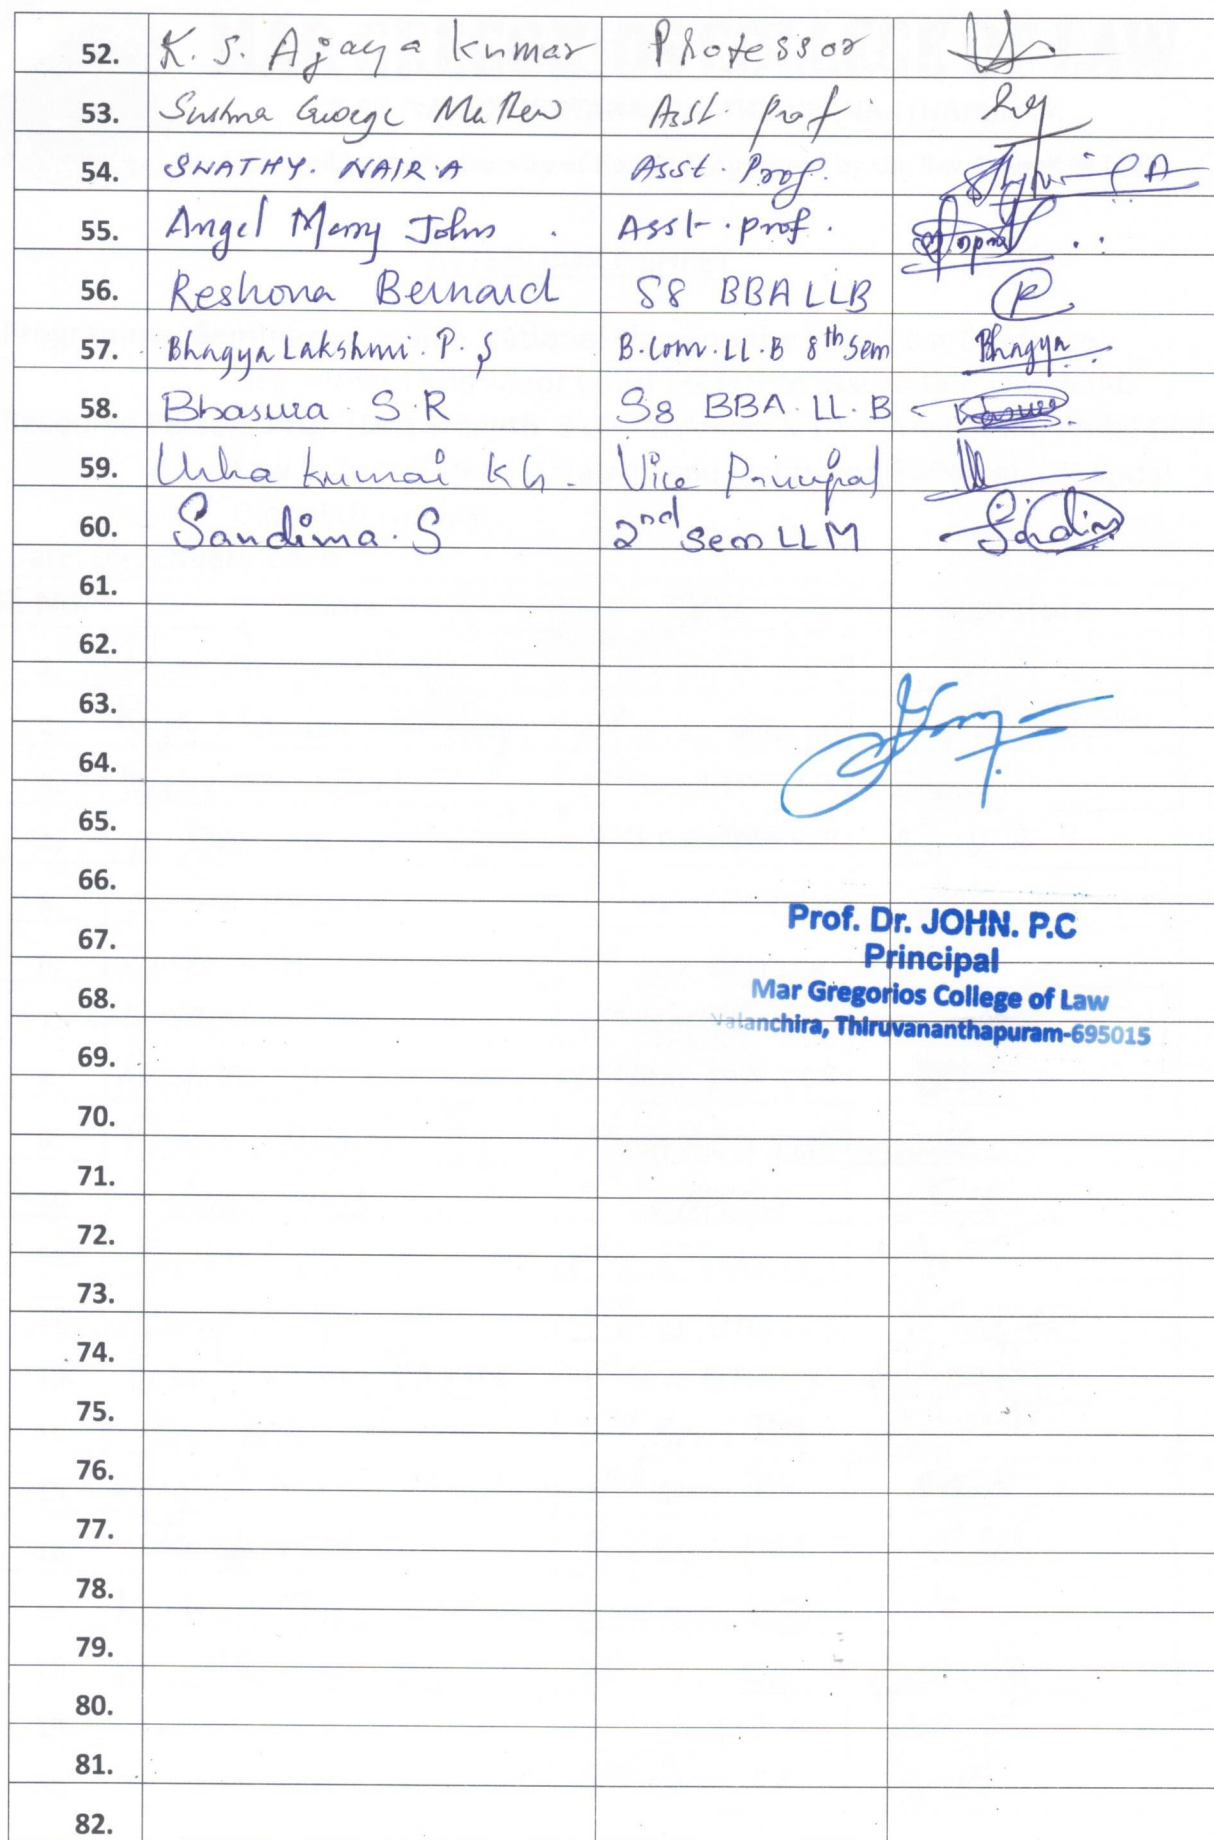 52. K. S. Ajaya kumar Professor
53. Sushma George Mathew Asst. prof
54. SWATHY. NAIR. A Asst. Prof.
55. Angel Merry John Asst. prof.
56. Reshona Bernard S8 BBA LLB R
57. Bhagya Lakshmi. P. S B.Com. LL.B 8th Sem Bhagya
58. Bhasura S.R S8 BBA. LL. B
59. Usha kumari Vice Principal
60. Sandima. S 2nd Sem LLM
61.
62.
63.
64.
65.
66.
67.
68.
69.
70.
71.
72.
73.
74.
75.
76.
77.
78.
79.
80.
81.
82.
Prof. Dr. JOHN. P.C
Principal
Mar Gregorios College of Law
Nalanchira, Thiruvananthapuram-695015